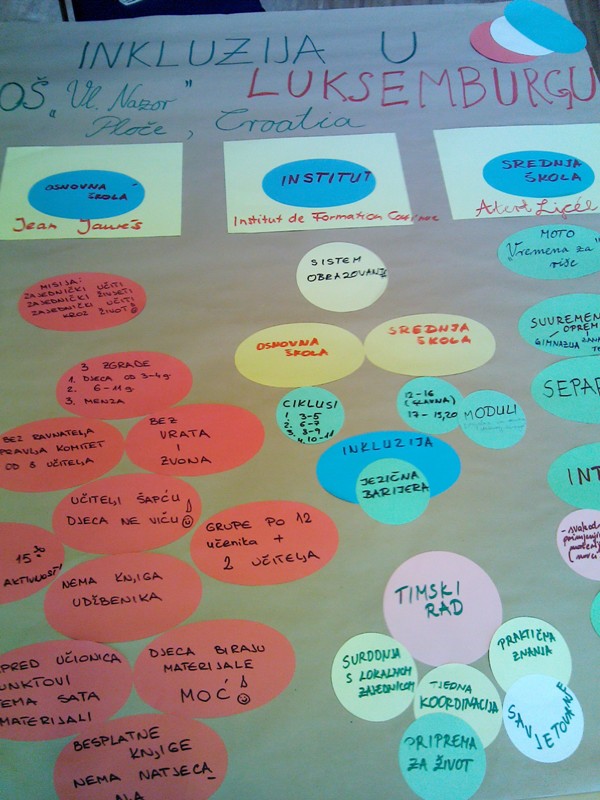 INKLUZIJA U
LUKSEMBURGU
OŠ „Vl. Nazor"
Ploče, Croatia
OSNOVNA
ŠKOLA
Jean Jaurès
INSTITUT
Institut de Formation
SREDNJA
ŠKOLA
MISIJA:
ZAJEDNIČKI UČITI
ZAJEDNIČKI ŽIVJETI
ZAJEDNIČKI UČITI
KROZ ŽIVOT!
3 ZGRADE
1. DJECA OD 3-4 g.
2. 6-11 g.
3. MENZA
BEZ RAVNATELJA
PRAVLJA KOMITET
OD 8 UČITELJA
BEZ
VRATA
I
ZVONA
UČITELJI ŠAPĆU
DJECA NE VIČU!
15 30
AKTIVNOSTI
GRUPE PO 12
učenika +
2 UČITELJA
NEMA KNJIGA
UDŽBENIKA
PRED UČIONICA
PUNKTOVI
TEMA SATA
MATERIJALI
DJECA BIRAJU
MATERIJALE
MOĆ!
BESPLATNE
KNJIGE
NEMA NATJECA
NJA
SISTEM
OBRAZOVANJA
OSNOVNA
ŠKOLA
SREDNJA
ŠKOLA
CIKLUSI
1. 3-5
2. 6-7
3. 8-9
4. 10-11
12-16
(GLAVNA)
17-19,20
MODULI
INKLUZIJA
JEZIČNA
BARIJERA
TIMSKI
RAD
SURDDNJA
S LOKALNOM
ZAJEDNICOM
TJEDNA
KOORDINACIJA
PRAKTIČNA
ZNANJA
SAVJETOVANJE
PRIPREMA
ZA ŽIVOT
MOTO
"Vremena za
više"
SUUREMEN
OPREM
GIMNAZIJA
SEPAR
INT